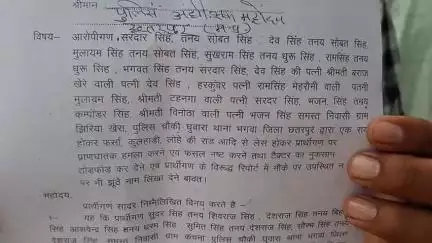 श्रीमान् पुलिस अधीक्षक महोदय
छतरपुर (म.प्र)
विषय– आरोपीगण सरदार सिंह, तनय सोबत सिंह देव सिंह तनय सोबत सिंह,
मुलायम सिंह तनय सोबत सिंह, सुखराम सिंह तनय घुरू सिंह, रामसिंह तनय
घुरू सिंह, भगवत सिंह तनय सरदार सिंह, देव सिंह की पत्नी श्रीमती बराज
खेरे वाली पत्नी देव सिंह, हरकुंवर पत्नी रामसिंह मेहरौनी वाली पत्नी
मुलायम सिंह, श्रीमती टहनगा वाली पत्नी सरदार सिंह, भजन सिंह तनय
कम्पोंडर सिंह, श्रीमती विनोता वाली पत्नी भजन सिंह समस्त निवासी ग्राम
झिरिया खेरा, पुलिस चौकी घुवारा थाना भगवा जिला छतरपुर द्वारा एक राय
होकर फर्सा, कुलहाडी, लोहे की राड आदि से लेस होकर प्रार्थीगण पर
प्राणघातक हमला करने एवं फसल नष्ट करने तथा टैक्टर का नुकसान
तोडफोड कर देने एवं प्रार्थीगण के विरूद्ध रिपोर्ट में मौके पर उपस्थित न
पर भी झूठे नाम लिखा देने बावत।
महोदय,
प्रार्थीगण सादर निम्नलिखित विनय करते है –
१– यह कि प्रार्थीगण सुंदर सिंह तनय शिवराज सिंह, देशराज सिंह तनय
सिंह तनय धरम सिंह सुमित सिंह तनय देशराज सिंह, तनय
देशराज सिंह समस्त निवासी ग्राम पुलिस चौकी घुवारा थाना भगवा जिला